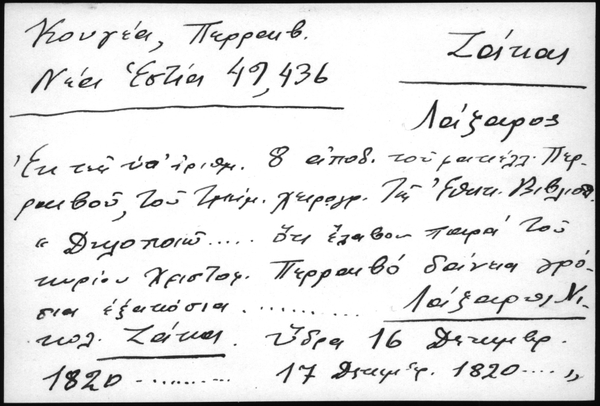 Κουγέα, Περραιβ.
Νέα Ἑστία 49, 436
Ζάκας
Λάζαρος
Ἐκ τῆς ὑπ' ἀριθμ. 8 ἀποδ. τοῦ φακέλλ. Περ-
ραιβοῦ, τοῦ τμήμ. χειρογρ. τῆς Ἐθνικ. Βιβλιοθ.
" Δηλοποιῶ ..... ὅτι ἔλαβον παρὰ τοῦ
κυρίου Χριστοφ. Περραιβό δάνεια γρό-
σια ἑξακόσια .......... Λάζαρος Νι-
κολ. Ζάκας. Ὕδρα 16 Δεκεμβρ.
1820 ---------- 17 Δεκεμβρ. 1820 .... "